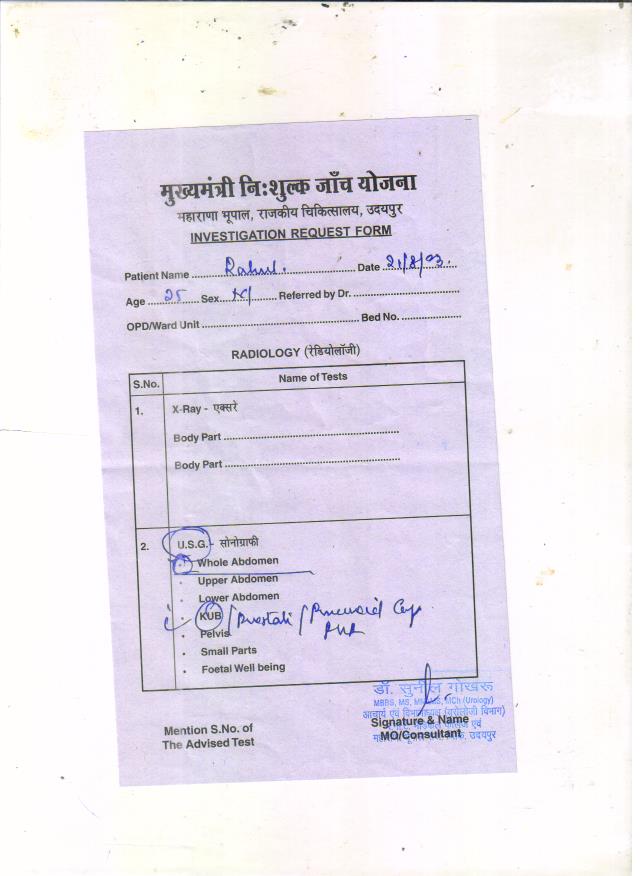 मुख्यमंत्री निःशुल्क जाँच योजना
महाराणा भूपाल, राजकीय चिकित्सालय, उदयपुर
INVESTIGATION REQUEST FORM
Patient Name Rahul. Date 21/8/23.
Age 25 Sex M Referred by Dr.
OPD/Ward Unit Bed No.
RADIOLOGY (रेडियोलॉजी)
S.No. Name of Tests
1. X-Ray - एक्सरे
Body Part
Body Part
2. U.S.G.- सोनोग्राफी
Whole Abdomen
Upper Abdomen
Lower Abdomen
KUB / Prostate /
Pelvis
Small Parts
Foetal Well being
डॉ. सुनील गोखरू
MBBS, MS, MCh (Urology)
आचार्य एवं विभागाध्यक्ष (यूरोलॉजी विभाग)
Mention S.No. of Signature & Name
The Advised Test MO/Consultant
उदयपुर